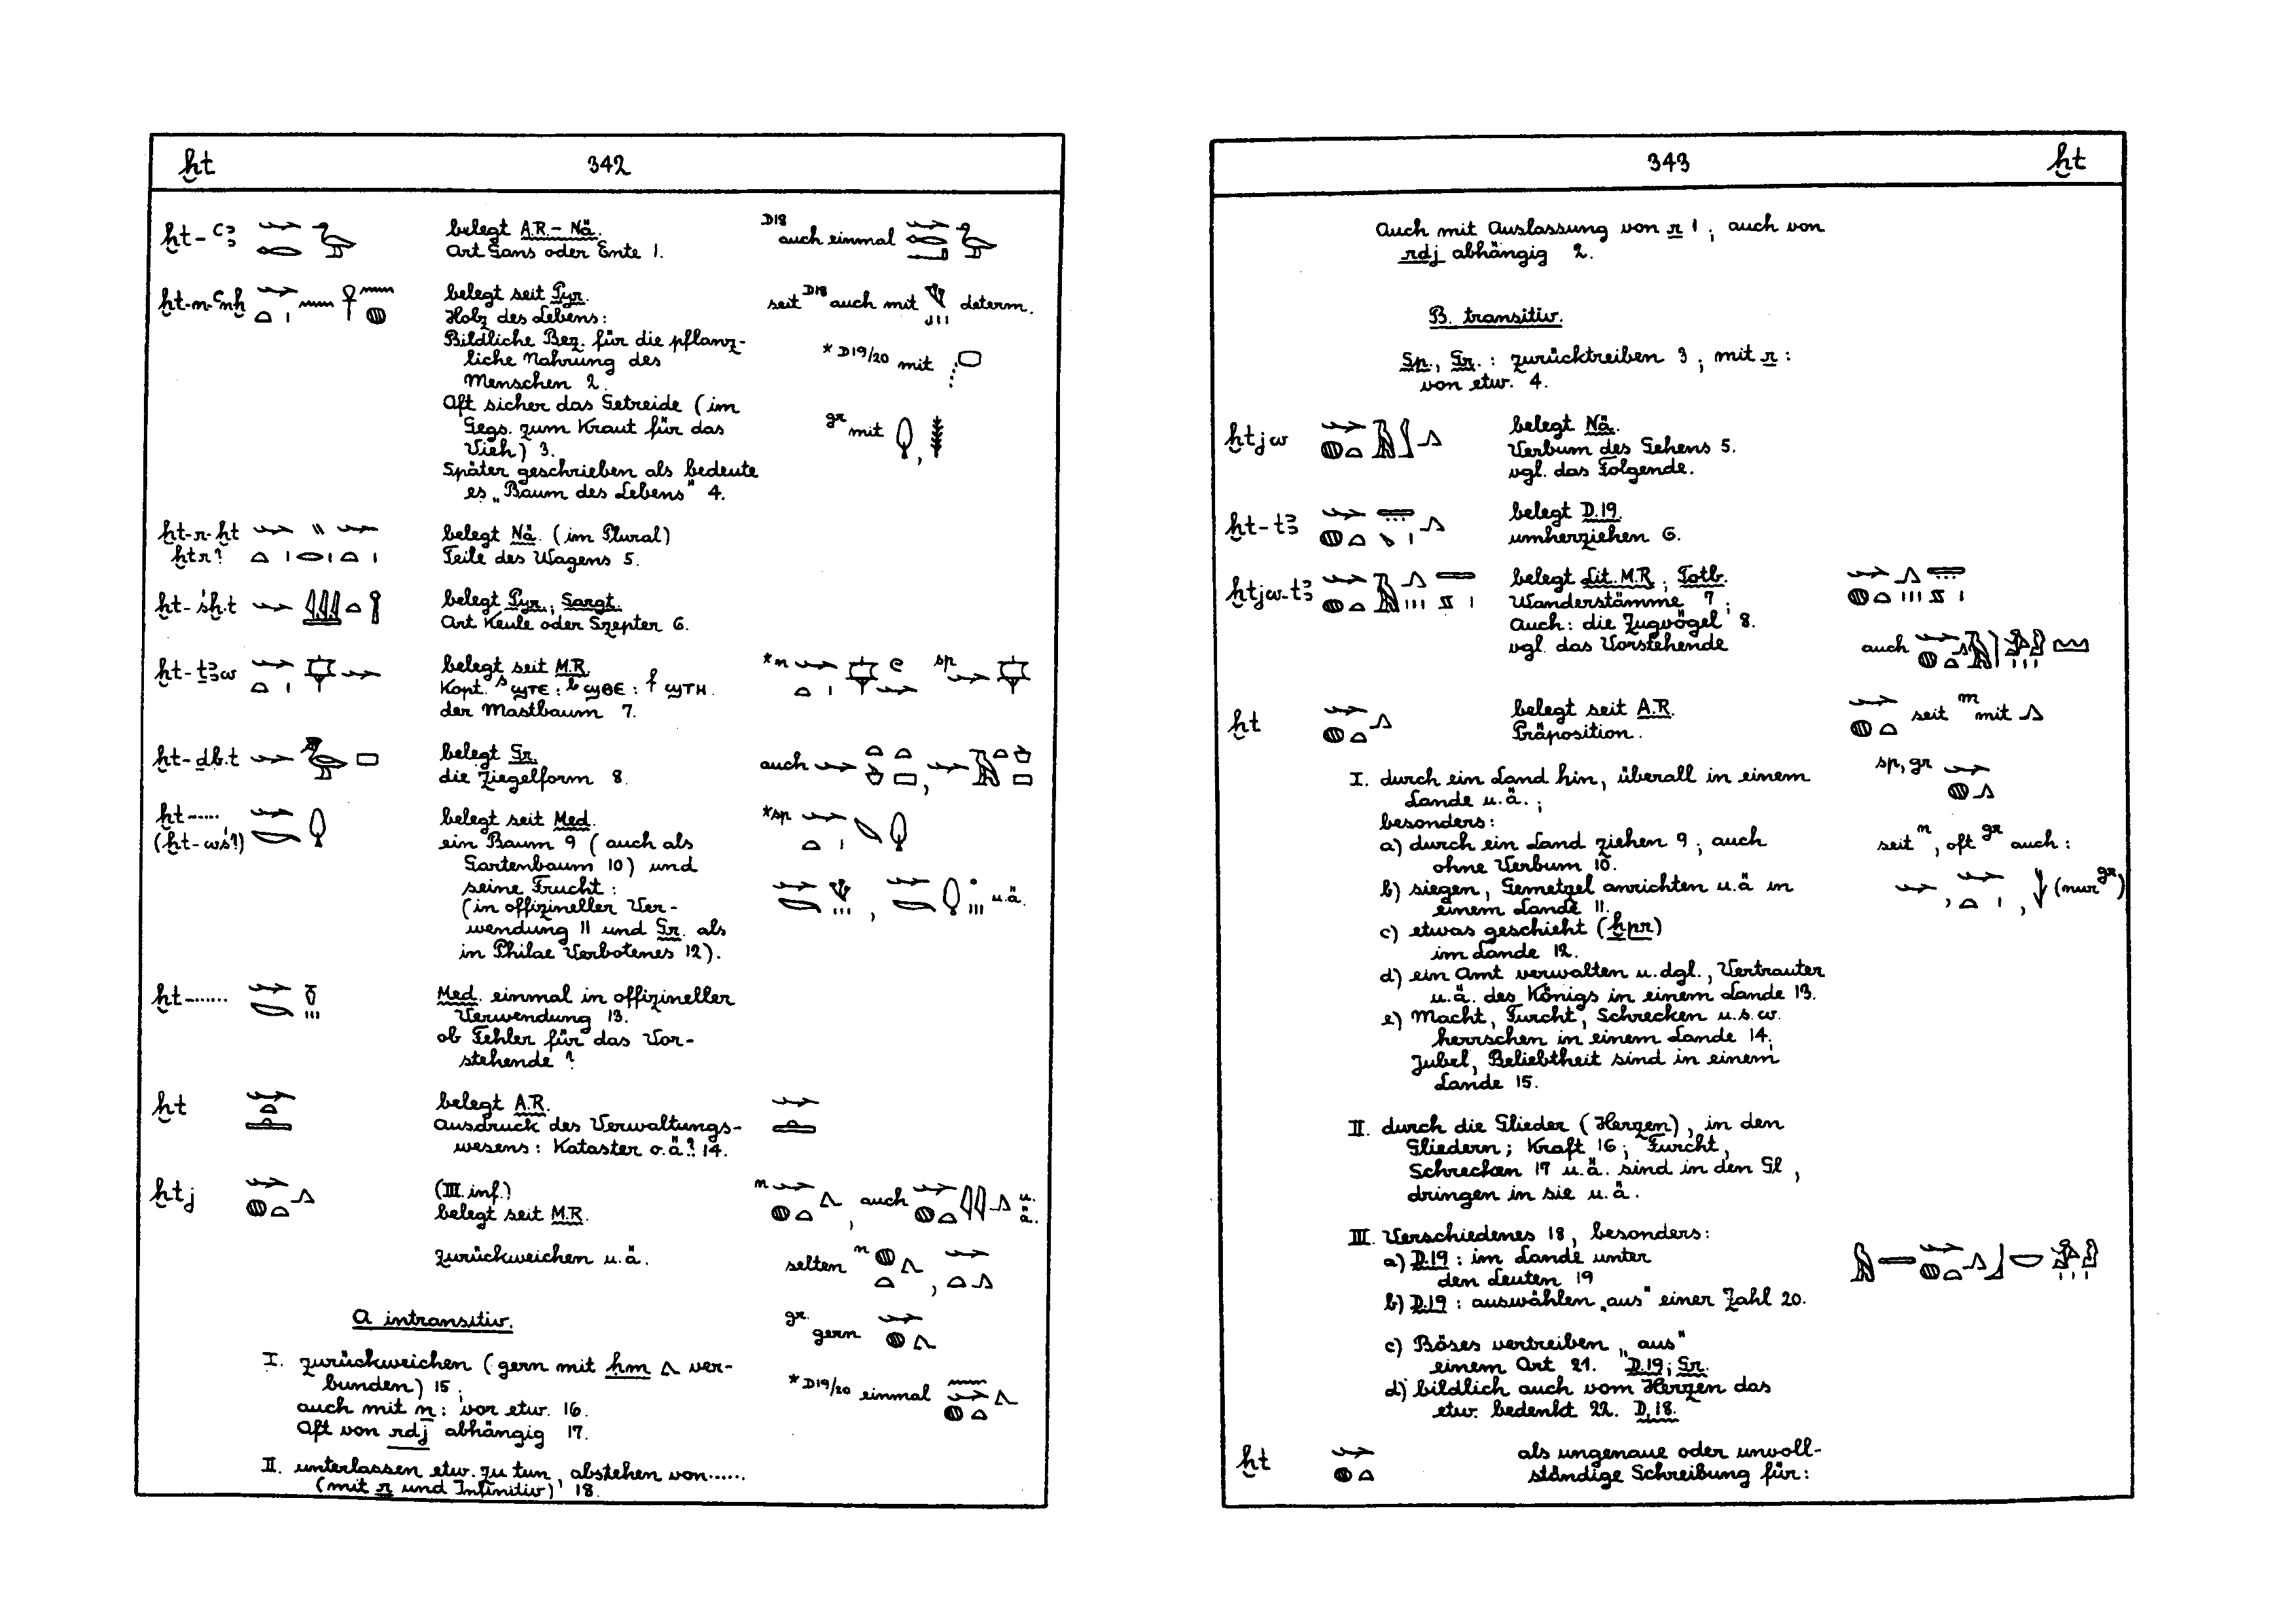 ḫt 342
ḫt-ꜥꜣ belegt A.R. - Nä. D18 auch einmal
Art Gans oder Ente 1.
ḫt-n-ꜥnḫ belegt seit Pyr. seit D18 auch mit determ.
Holz des Lebens:
Bildliche Bez. für die pflanz-
liche Nahrung des * D19/20 mit
Menschen 2.
Oft sicher das Getreide (im
Gegs. zum Kraut für das gr mit ,
Vieh) 3.
Später geschrieben als bedeute
es „Baum des Lebens" 4.
ḫt-r-ḫt belegt Nä. (im Plural)
ḫtr? Teile des Wagens 5.
ḫt-śḫ.t belegt Pyr., Sargt.
Art Keule oder Szepter 6.
ḫt-ṯꜣw belegt seit M.R. *n sp
Kopt. s ϣⲧⲉ : b ϣⲑⲉ : f ϣⲧⲏ.
der Mastbaum 7.
ḫt-ḏb.t belegt Gr. auch ,
die Ziegelform 8.
ḫt...... belegt seit Med. *sp
(ḫt-wś?) ein Baum 9 (auch als
Gartenbaum 10) und
seine Frucht: , u.ä.
(in offizineller Ver-
wendung 11 und Gr. als
in Philae Verbotenes 12).
ḫt-...... Med. einmal in offizineller
Verwendung 13.
ob Fehler für das Vor-
stehende?
ḫt belegt A.R.
Ausdruck des Verwaltungs-
wesens: Kataster o.ä.? 14.
ḫtj (III. inf.) n , auch u.ä.
belegt seit M.R.
zurückweichen u.ä. selten n ,
A intransitiv. gr. gern
I. zurückweichen (gern mit ḥm ver-
bunden) 15; * D19/20 einmal
auch mit n: vor etw. 16.
Oft von rdj abhängig 17.
II. unterlassen etw. zu tun, abstehen von......
(mit r und Infinitiv) 18.
343 ḫt
Auch mit Auslassung von r 1; auch von
rdj abhängig 2.
B. transitiv.
Sp., Gr.: zurücktreiben 3; mit r:
von etw. 4.
ḫtjw belegt Nä.
Verbum des Gehens 5.
vgl. das Folgende.
ḫt-tꜣ belegt D.19.
umherziehen 6.
ḫtjw-tꜣ belegt Lit. M.R.; Totb.
Wanderstämme 7;
Auch: die Zugvögel 8.
vgl. das Vorstehende auch
ḫt belegt seit A.R. seit m mit
Präposition.
I. durch ein Land hin, überall in einem sp, gr
Lande u.ä.;
besonders:
a) durch ein Land ziehen 9; auch seit n, oft gr auch:
ohne Verbum 10.
b) siegen, Gemetzel anrichten u.ä in , , (nur gr)
einem Lande 11.
c) etwas geschieht (ḫpr)
im Lande 12.
d) ein Amt verwalten u.dgl., Vertrauter
u.ä. des Königs in einem Lande 13.
e) Macht, Furcht, Schrecken u.s.w.
herrschen in einem Lande 14;
Jubel, Beliebtheit sind in einem
Lande 15.
II. durch die Glieder (Herzen), in den
Gliedern; Kraft 16; Furcht,
Schrecken 17 u.ä. sind in den Gl,
dringen in sie u.ä.
III. Verschiedenes 18, besonders:
a) D.19: im Lande unter
den Leuten 19
b) D.19: auswählen „aus" einer Zahl 20.
c) Böses vertreiben „aus"
einem Ort 21. D.19; Gr.
d) bildlich auch vom Herzen das
etw. bedenkt 22. D.18.
ḫt als ungenaue oder unvoll-
ständige Schreibung für: